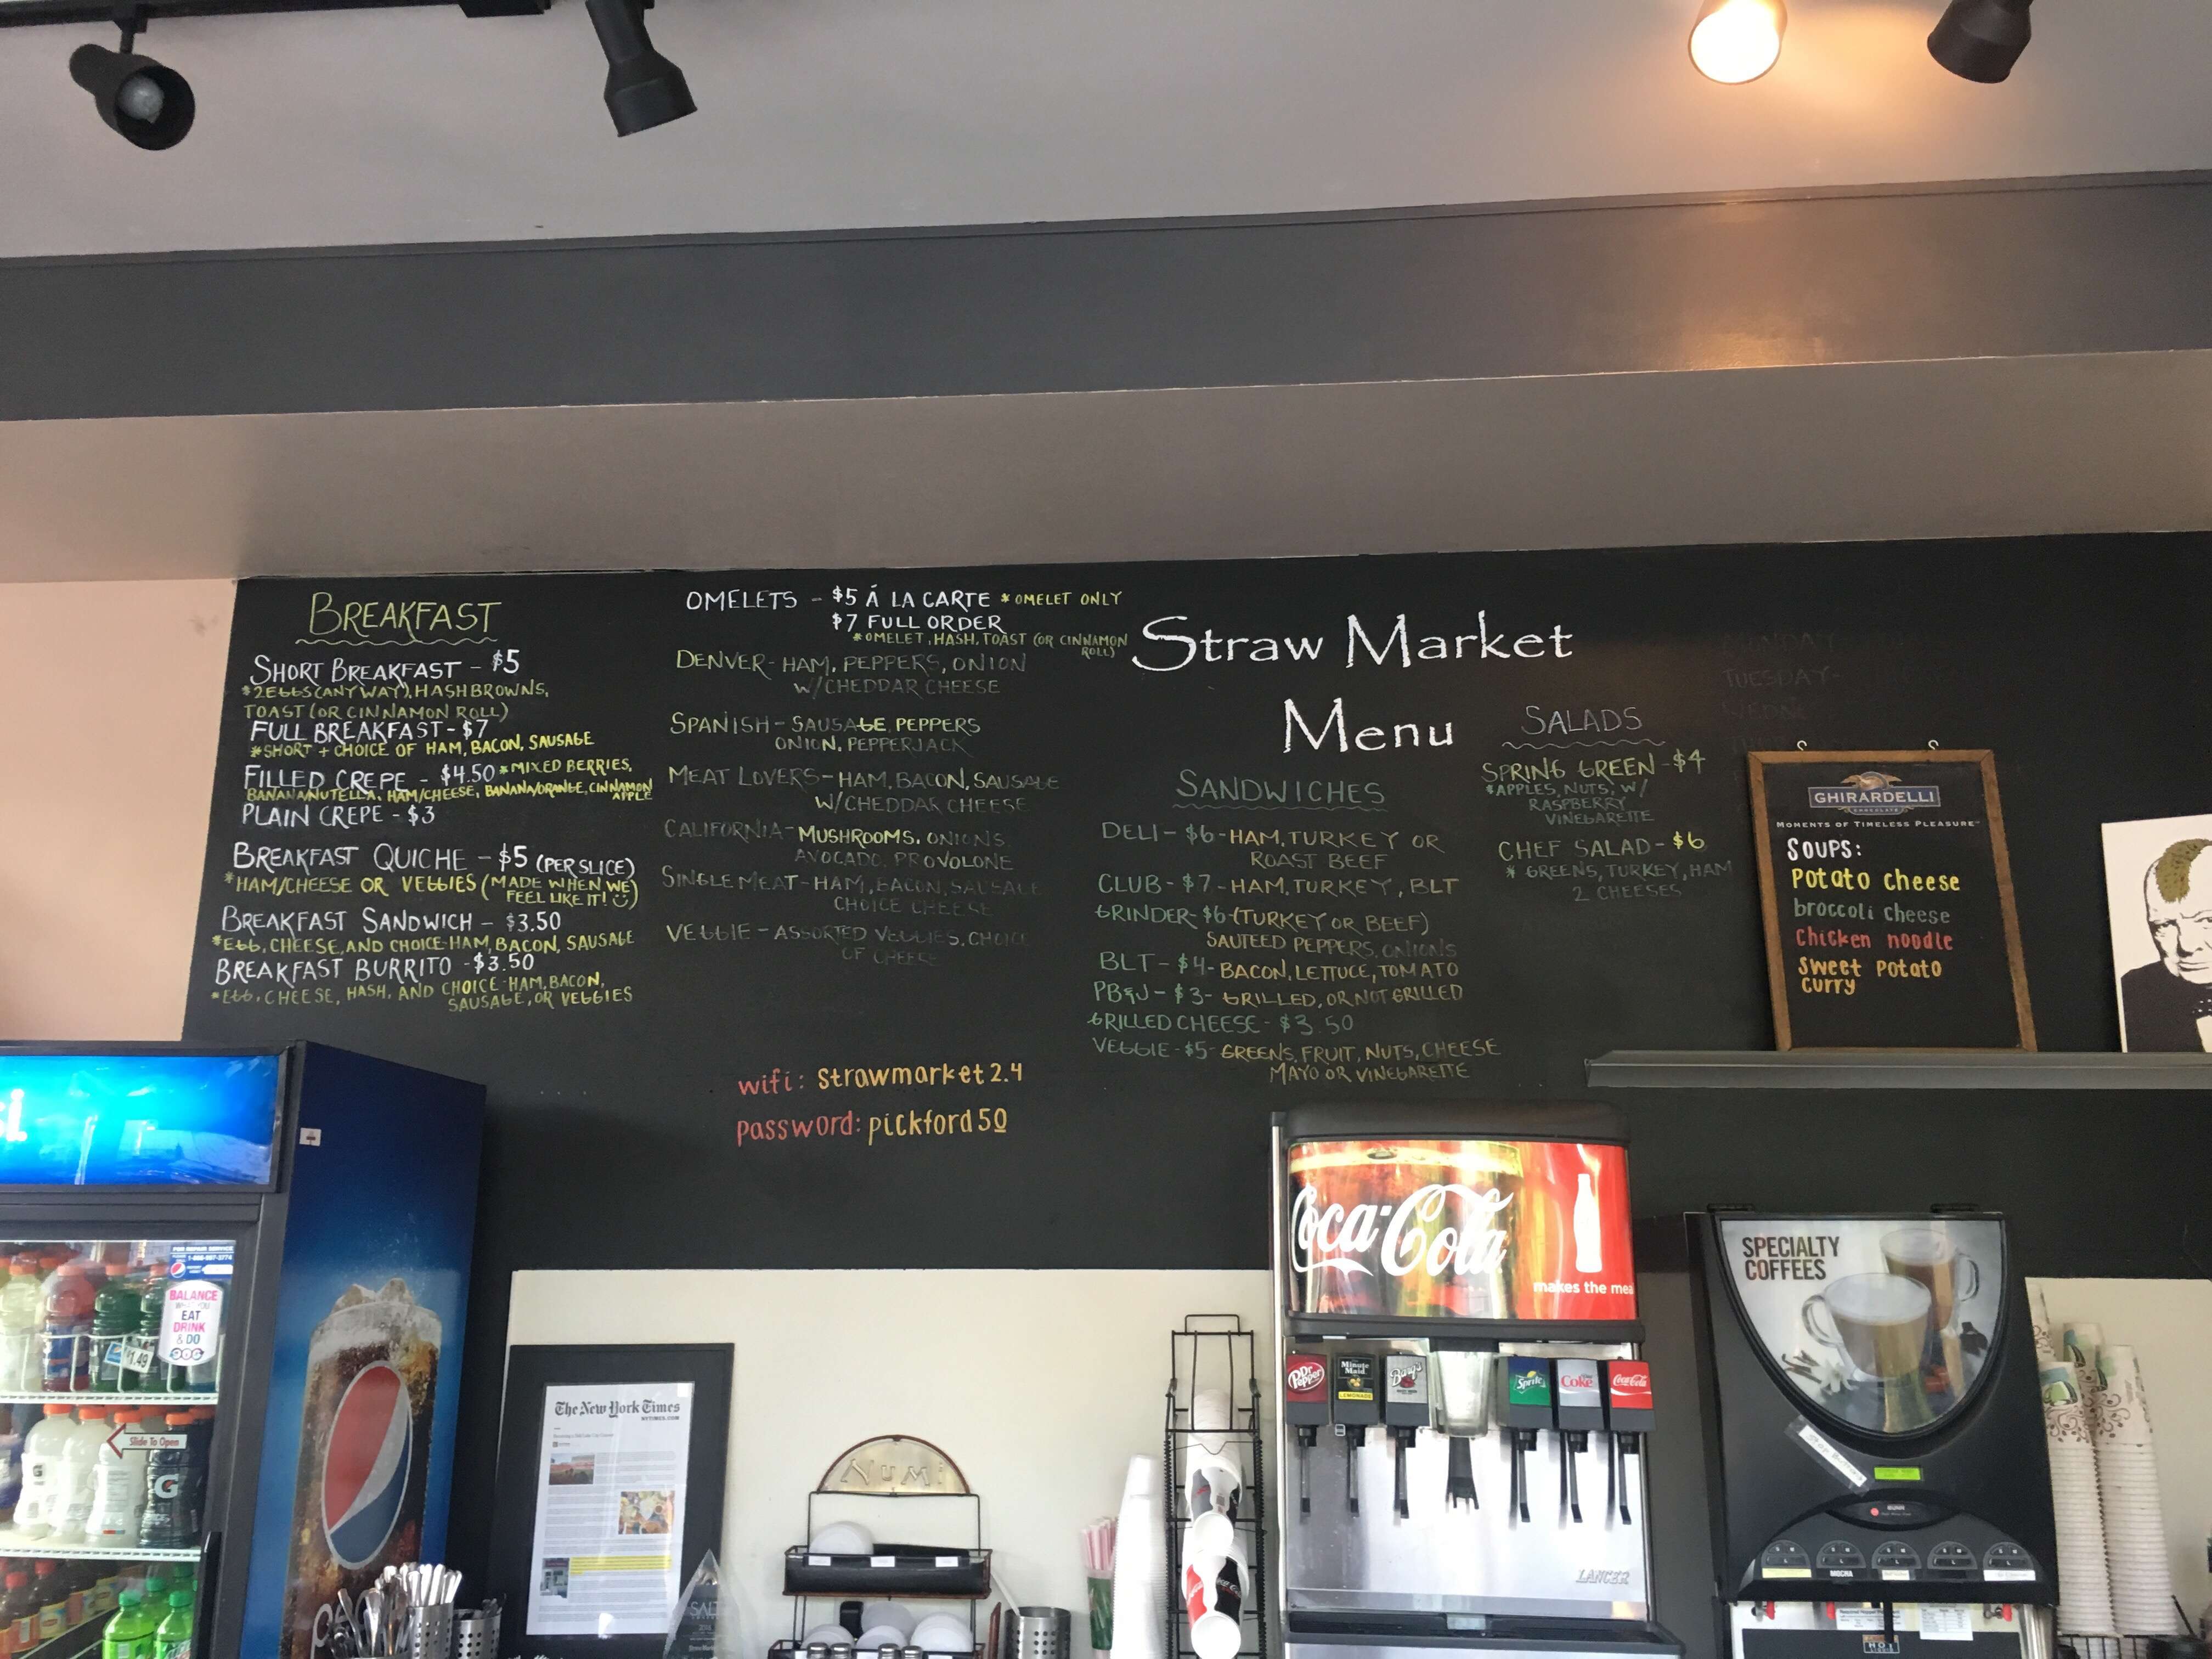 BREAKFAST
SHORT BREAKFAST - $5
*2 EGGS (ANY WAY), HASHBROWNS,
TOAST (OR CINNAMON ROLL)
FULL BREAKFAST - $7
*SHORT + CHOICE OF HAM, BACON, SAUSAGE
FILLED CREPE - $4.50 *MIXED BERRIES,
BANANA/NUTELLA, HAM/CHEESE, BANANA/ORANGE, CINNAMON
APPLE
PLAIN CREPE - $3
BREAKFAST QUICHE - $5 (PER SLICE)
*HAM/CHEESE OR VEGGIES (MADE WHEN WE
FEEL LIKE IT! ☺)
BREAKFAST SANDWICH - $3.50
*EGG, CHEESE, AND CHOICE-HAM, BACON, SAUSAGE
BREAKFAST BURRITO - $3.50
*EGG, CHEESE, HASH, AND CHOICE-HAM, BACON,
SAUSAGE, OR VEGGIES
OMELETS - $5 Á LA CARTE *OMELET ONLY
$7 FULL ORDER
*OMELET, HASH, TOAST (OR CINNAMON
ROLL)
DENVER - HAM, PEPPERS, ONION
W/CHEDDAR CHEESE
SPANISH - SAUSAGE, PEPPERS
ONION, PEPPERJACK
MEAT LOVERS - HAM, BACON, SAUSAGE
W/CHEDDAR CHEESE
CALIFORNIA - MUSHROOMS, ONIONS,
AVOCADO, PROVOLONE
SINGLE MEAT - HAM, BACON, SAUSAGE
CHOICE CHEESE
VEGGIE - ASSORTED VEGGIES, CHOICE
OF CHEESE
wifi: strawmarket2.4
password: pickford50
Straw Market
Menu
SANDWICHES
DELI - $6 - HAM, TURKEY OR
ROAST BEEF
CLUB - $7 - HAM, TURKEY, BLT
GRINDER - $6 - (TURKEY OR BEEF)
SAUTEED PEPPERS, ONIONS
BLT - $4 - BACON, LETTUCE, TOMATO
PB&J - $3 - GRILLED, OR NOT GRILLED
GRILLED CHEESE - $3.50
VEGGIE - $5 - GREENS, FRUIT, NUTS, CHEESE
MAYO OR VINEGARETTE
SALADS
SPRING GREEN - $4
*APPLES, NUTS, W/
RASPBERRY
VINEGARETTE
CHEF SALAD - $6
* GREENS, TURKEY, HAM
2 CHEESES
MONDAY
TUESDAY-
GHIRARDELLI
CHOCOLATE
MOMENTS OF TIMELESS PLEASURE
SOUPS:
Potato cheese
broccoli cheese
chicken noodle
sweet potato
curry
FOR REPAIR SERVICE
BALANCE
WHAT YOU
EAT
DRINK
& DO
$1.49
Slide To Open
G
The New York Times
NYTIMES.COM
NUMI
SALT
Coca-Cola
makes the mea
Dr Pepper
Minute Maid
LEMONADE
Barq's
Sprite
Coke
Coca-Cola
LANCER
SPECIALTY
COFFEES
BUNN
MOCHA
HOT